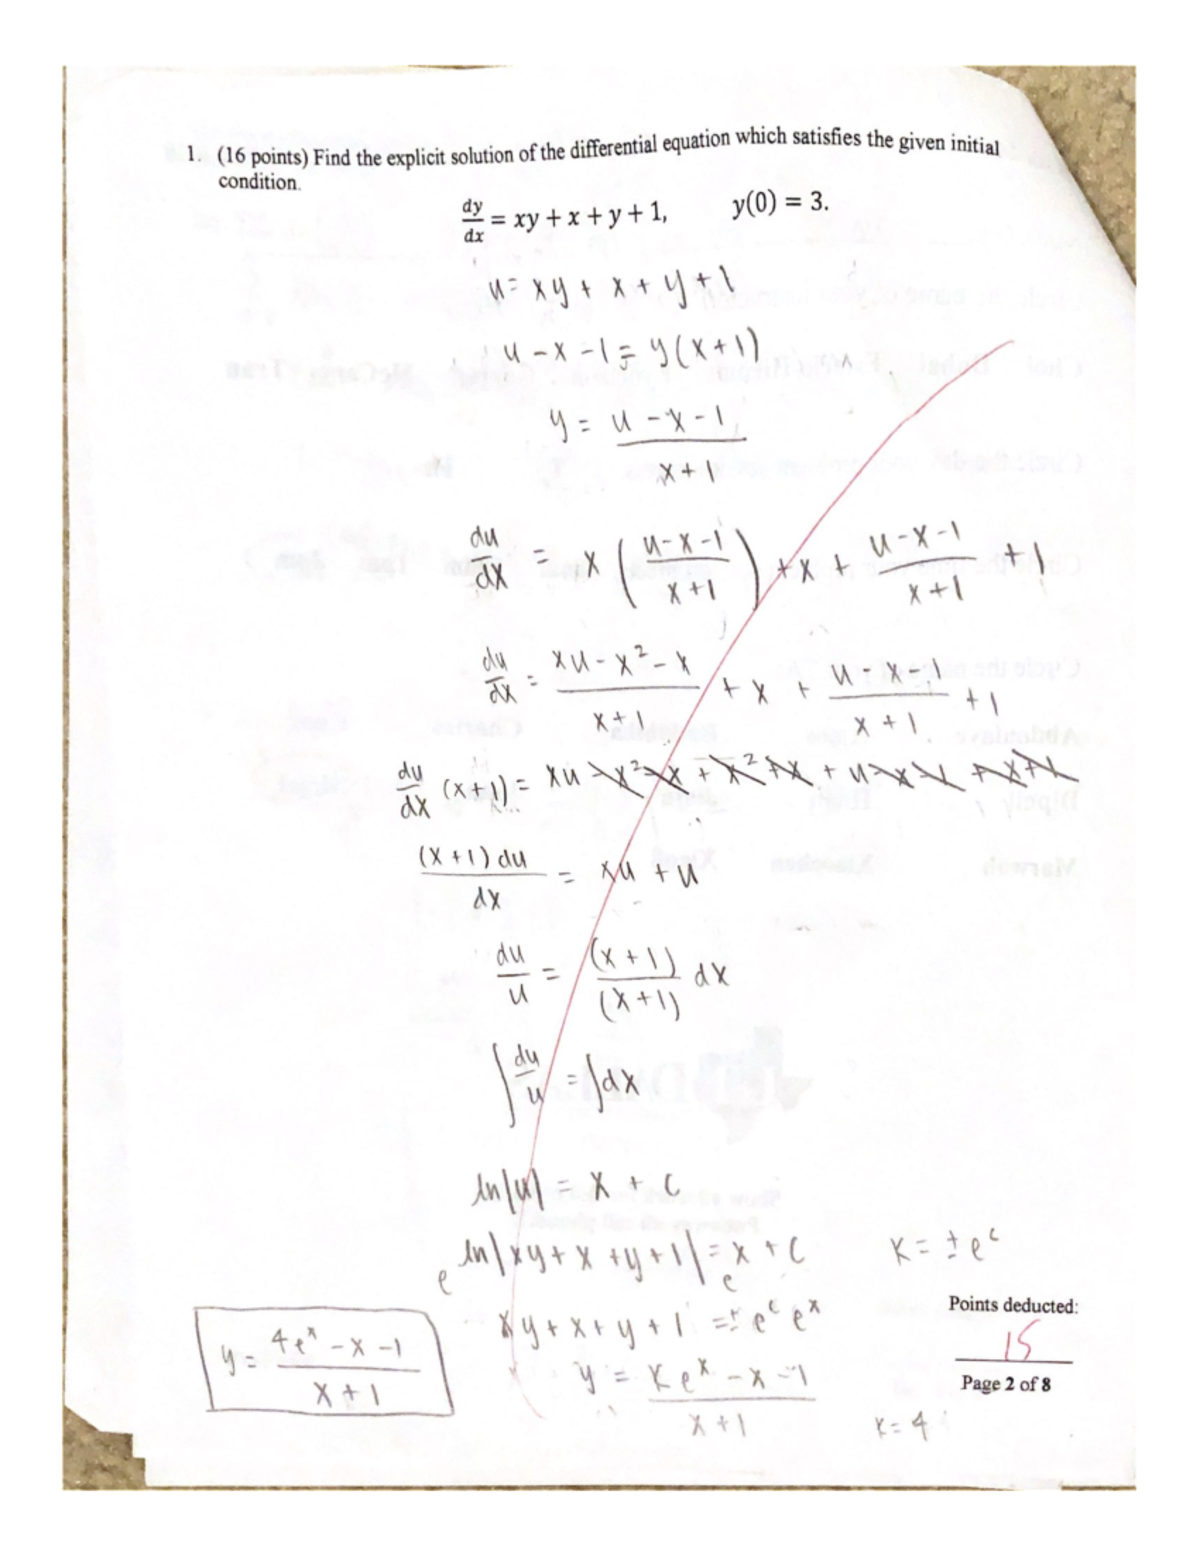 1. (16 points) Find the explicit solution of the differential equation which satisfies the given initial
condition.
dy/dx = xy + x + y + 1, y(0) = 3.
u = xy + x + y + 1
u - x - 1 = y(x+1)
y = (u - x - 1)/(x+1)
du/dx = x ((u-x-1)/(x+1)) + x + (u-x-1)/(x+1) + 1
du/dx = (xu - x² - x)/(x+1) + x + (u-x-1)/(x+1) + 1
du/dx (x+1) = xu - x² - x + x² + x + u - x - 1 + x + 1
(x+1)du/dx = xu + u
du/u = (x+1)/(x+1) dx
∫ du/u = ∫ dx
ln|u| = x + c
e^ln|xy + x + y + 1| = e^x + c K = ± e^c
xy + x + y + 1 = ± e^c e^x
y = (Ke^x - x - 1)/(x+1) K = 4
y = (4e^x - x - 1)/(x+1)
Points deducted:
15
Page 2 of 8